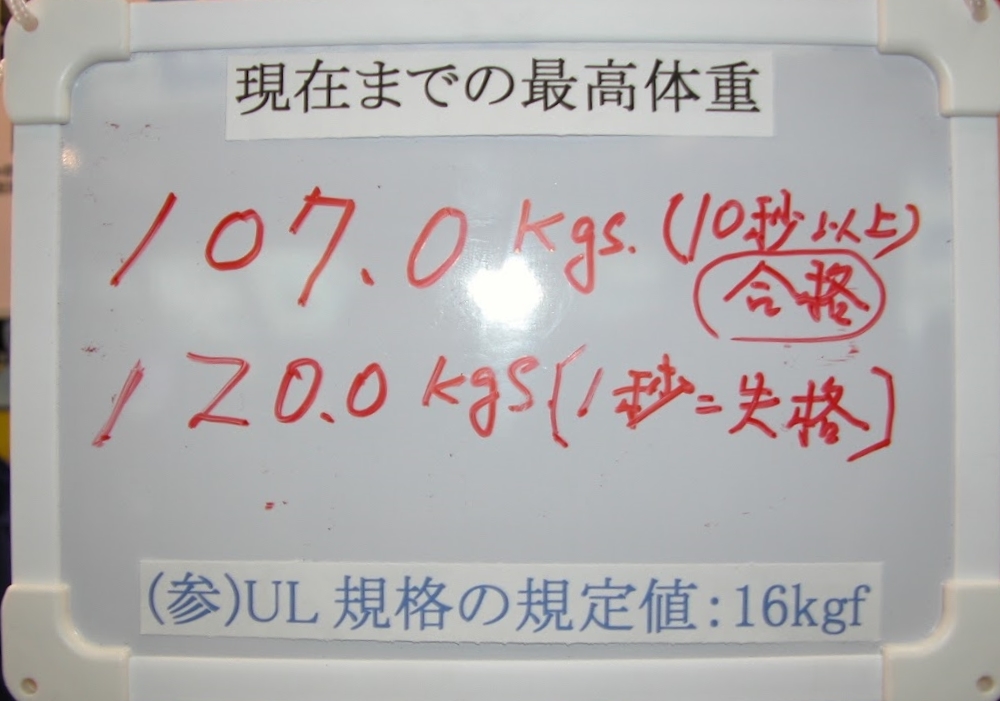 現在までの最高体重
107.0 kgs. (10秒以上)
合格
120.0 kgs (1秒=失格)
(参)UL 規格の規定値:16kgf